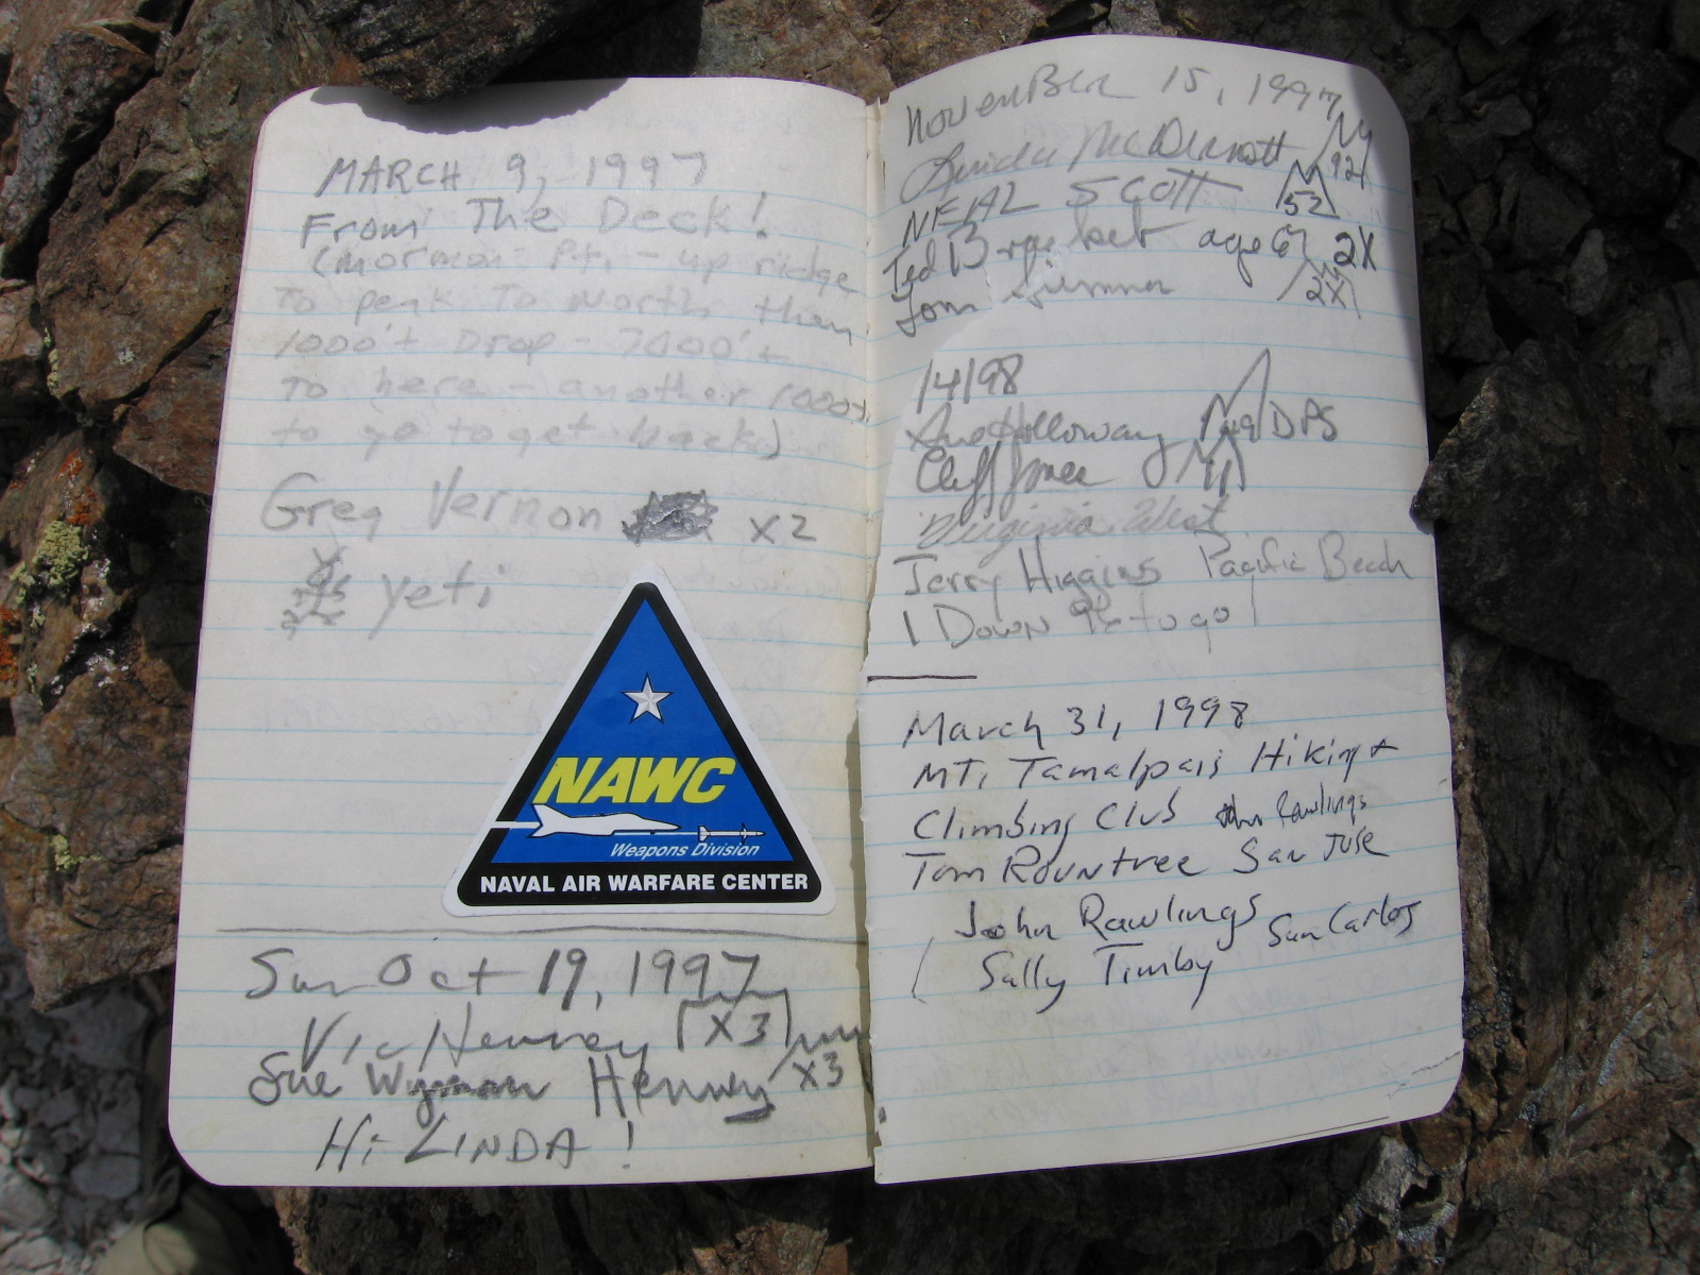 MARCH 9, 1997
From The Deck!
(Mormon Pt. - up ridge
To peak To North then
1000'+ Drop - 7000'+
To here - another 1000+
to go to get back)
Greg Vernon X2
yeti
NAWC
Weapons Division
NAVAL AIR WARFARE CENTER
Sun Oct 19, 1997
Vic Henney X3
Sue Wyman Henney X3
Hi LINDA!
November 15, 1997
Linda McDermott 92
NEAL SCOTT 52
Ted age 67 2X
Tom 2X
14/98
Sue Holloway 49 DPS
Cliff Jones
Virginia West
Jerry Higgins Pacific Beach
1 Down to go
March 31, 1998
MT. Tamalpais Hiking +
Climbing Club John Rawlings
Tom Rountree San Jose
John Rawlings
Sally Timby San Carlos